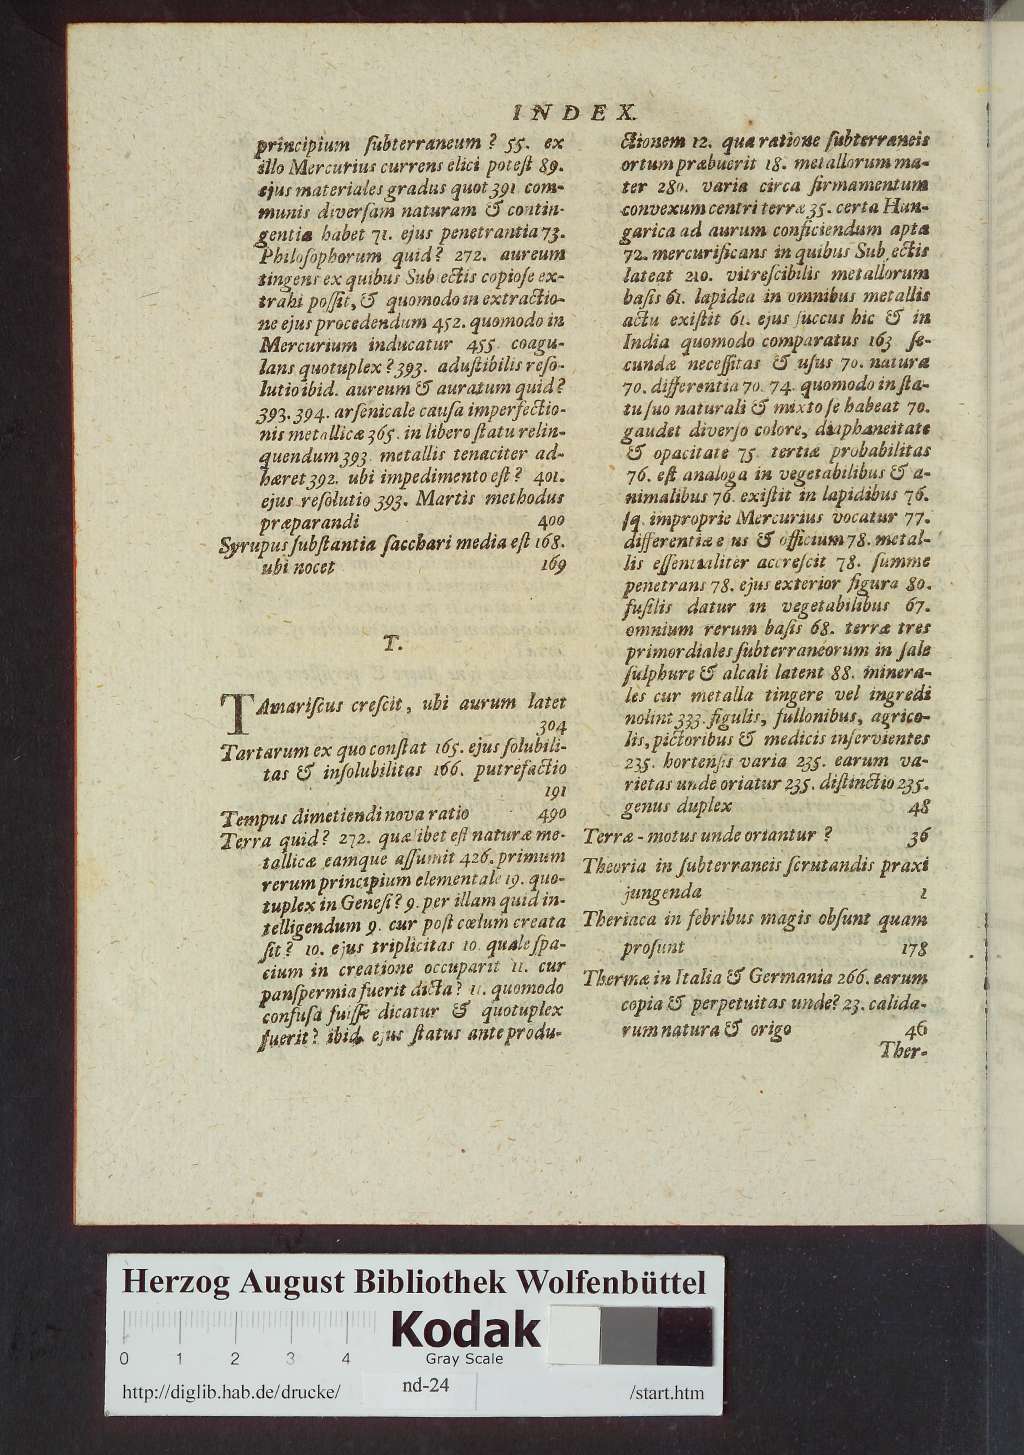 INDEX.
principium ſubterraneum? 55. ex
illo Mercurius currens elici poteſt 89.
ejus materiales gradus quot 391 com-
munis diverſam naturam & contin-
gentia habet 71. ejus penetrantia 73.
Philoſophorum quid? 272. aureum
tingens ex quibus Subjectis copioſe ex-
trahi poſſit, & quomodo in extractio-
ne ejus procedendum 452. quomodo in
Mercurium inducatur 455. coagu-
lans quotuplex? 393. aduſtibilis reſo-
lutio ibid. aureum & auratum quid?
393. 394. arſenicale cauſa imperfectio-
nis metallicæ 365. in libero ſtatu relin-
quendum 393. metallis tenaciter ad-
hæret 392. ubi impedimento eſt? 401.
ejus reſolutio 393. Martis methodus
præparandi 400
Syrupus ſubſtantia ſacchari media eſt 168.
ubi nocet 169
T.
TAmariſcus creſcit, ubi aurum latet
304
Tartarum ex quo conſtat 165. ejus ſolubili-
tas & inſolubilitas 166. putrefactio
191
Tempus dimetiendi nova ratio 490
Terra quid? 272. quælibet eſt naturæ me-
tallicæ eamque aſſumit 426. primum
rerum principium elementale 19. quo-
tuplex in Geneſi? 9. per illam quid in-
telligendum 9. cur poſt cœlum creata
ſit? 10. ejus triplicitas 10. quale ſpa-
cium in creatione occuparit 11. cur
panſpermia fuerit dicta? 11. quomodo
confuſa fuiſſe dicatur & quotuplex
fuerit? ibid. ejus ſtatus ante produ-
ctionem 12. qua ratione ſubterraneis
ortum præbuerit 18. metallorum ma-
ter 280. varia circa firmamentum
convexum centri terræ 35. certa Hun-
garica ad aurum conficiendum apta
72. mercurificans in quibus Subjectis
lateat 210. vitreſcibilis metallorum
baſis 61. lapidea in omnibus metallis
actu exiſtit 61. ejus ſuccus hic & in
India quomodo comparatus 163 ſe-
cundæ neceſſitas & uſus 70. natura
70. differentia 70. 74. quomodo in ſta-
tu ſuo naturali & mixto ſe habeat 70.
gaudet diverſo colore, diaphaneitate
& opacitate 75. tertiæ probabilitas
76. eſt analoga in vegetabilibus & a-
nimalibus 76. exiſtit in lapidibus 76.
ſq. improprie Mercurius vocatur 77.
differentiæ ejus & officium 78. metal-
lis eſſentialiter accreſcit 78. ſumme
penetrans 78. ejus exterior figura 80.
fuſilis datur in vegetabilibus 67.
omnium rerum baſis 68. terræ tres
primordiales ſubterraneorum in ſale
ſulphure & alcali latent 88. minera-
les cur metalla tingere vel ingredi
nolint 333. figulis, fullonibus, agrico-
lis, pictoribus & medicis inſervientes
235. hortenſis varia 235. earum va-
rietas unde oriatur 235. diſtinctio 235.
genus duplex 48
Terræ-motus unde oriantur? 36
Theoria in ſubterraneis ſcrutandis praxi
jungenda 1
Theriaca in febribus magis obſunt quam
proſunt 178
Thermæ in Italia & Germania 266. earum
copia & perpetuitas unde? 23. calida-
rum natura & origo 46
Ther-
Herzog August Bibliothek Wolfenbüttel
Kodak
Gray Scale
0 1 2 3 4
http://diglib.hab.de/drucke/ nd-24 /start.htm